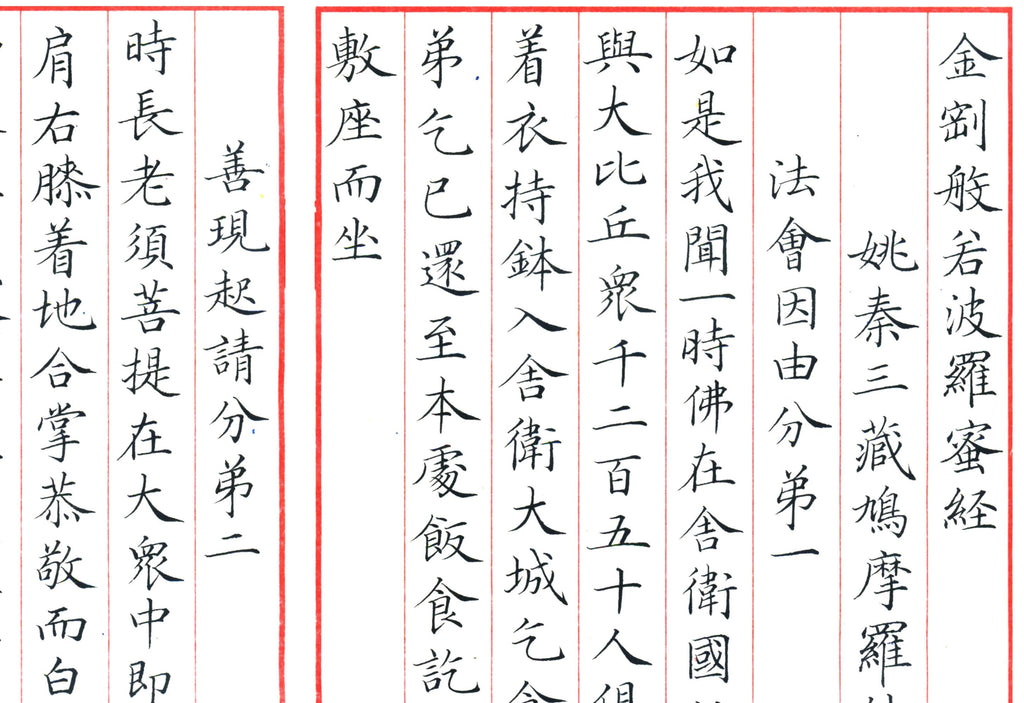 金剛般若波羅蜜経
姚秦三藏鳩摩羅
法會因由分弟一
如是我聞一時佛在舍衛國
與大比丘衆千二百五十人俱
着衣持鉢入舍衛大城乞食
弟乞已還至本處飯食訖
敷座而坐
善現起請分弟二
時長老須菩提在大衆中即
肩右膝着地合掌恭敬而白